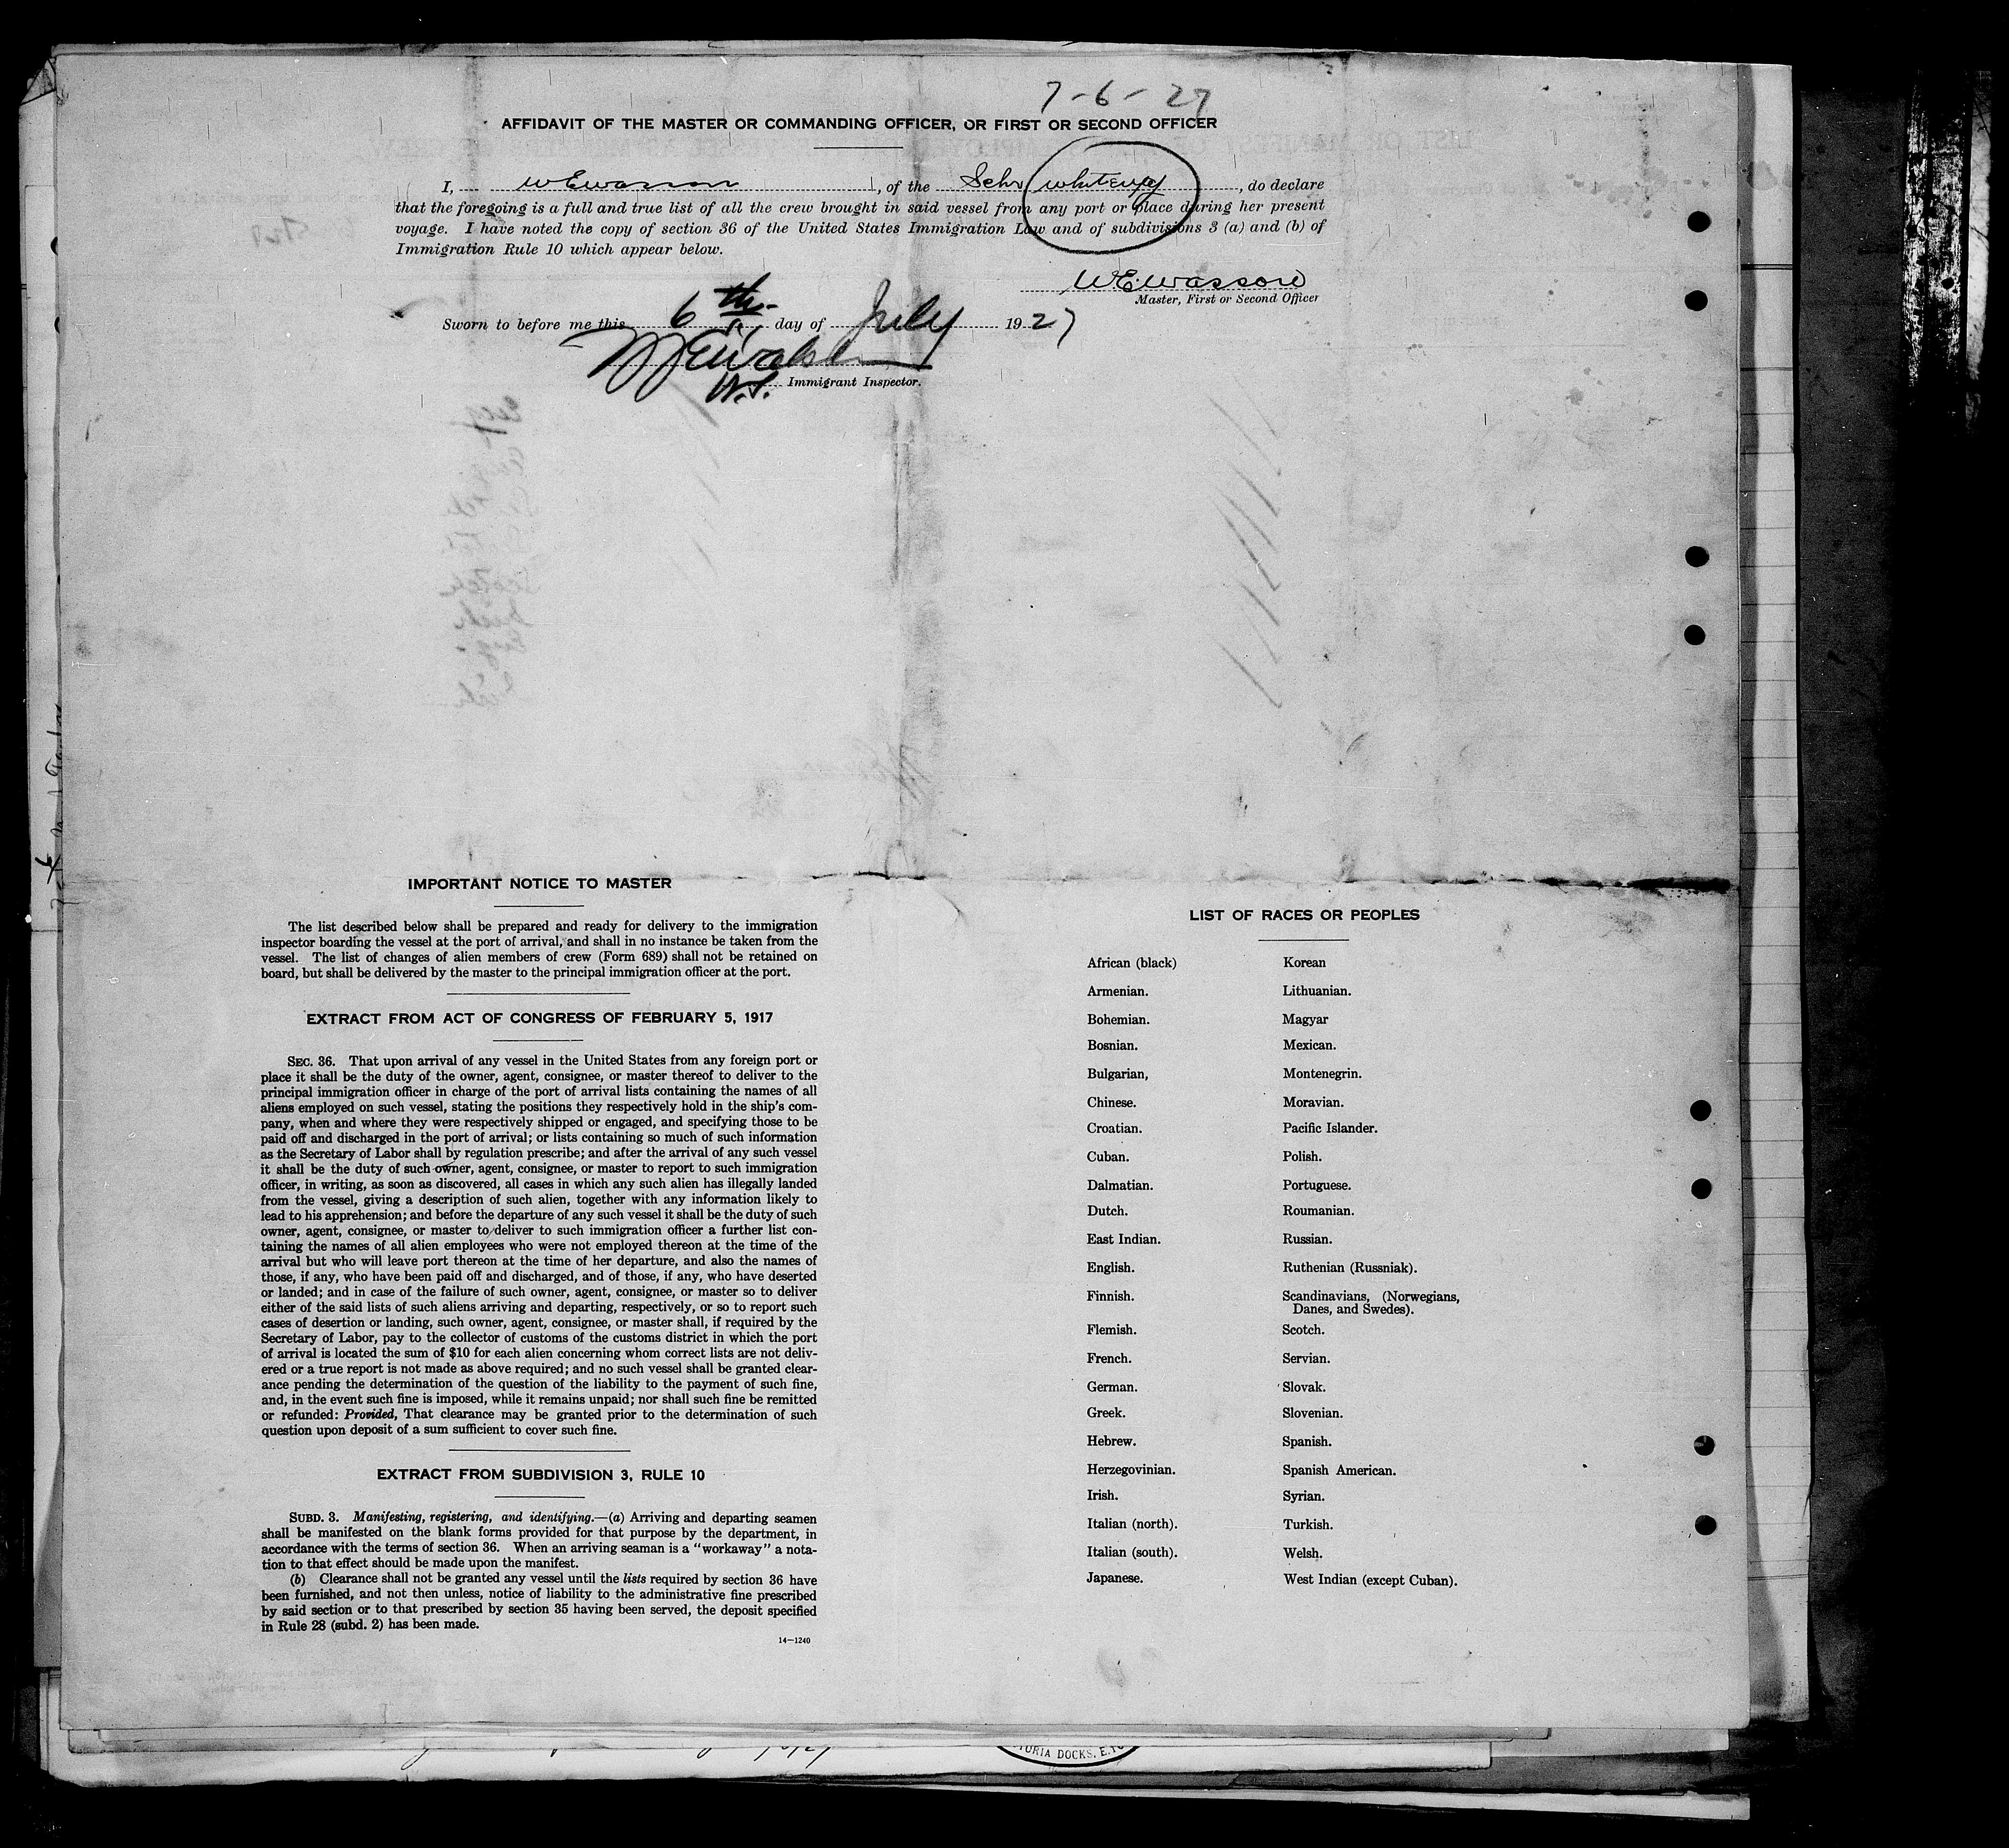 7-6-27
AFFIDAVIT OF THE MASTER OR COMMANDING OFFICER, OR FIRST OR SECOND OFFICER
I, W E Wasson, of the Schr, do declare
that the foregoing is a full and true list of all the crew brought in said vessel from any port or place during her present
voyage. I have noted the copy of section 36 of the United States Immigration Law and of subdivisions 3 (a) and (b) of
Immigration Rule 10 which appear below.
W.E. Wasson
Master, First or Second Officer
Sworn to before me this 6th day of July 1927
Immigrant Inspector.
IMPORTANT NOTICE TO MASTER
The list described below shall be prepared and ready for delivery to the immigration
inspector boarding the vessel at the port of arrival, and shall in no instance be taken from the
vessel. The list of changes of alien members of crew (Form 689) shall not be retained on
board, but shall be delivered by the master to the principal immigration officer at the port.
EXTRACT FROM ACT OF CONGRESS OF FEBRUARY 5, 1917
SEC. 36. That upon arrival of any vessel in the United States from any foreign port or
place it shall be the duty of the owner, agent, consignee, or master thereof to deliver to the
principal immigration officer in charge of the port of arrival lists containing the names of all
aliens employed on such vessel, stating the positions they respectively hold in the ship's com-
pany, when and where they were respectively shipped or engaged, and specifying those to be
paid off and discharged in the port of arrival; or lists containing so much of such information
as the Secretary of Labor shall by regulation prescribe; and after the arrival of any such vessel
it shall be the duty of such owner, agent, consignee, or master to report to such immigration
officer, in writing, as soon as discovered, all cases in which any such alien has illegally landed
from the vessel, giving a description of such alien, together with any information likely to
lead to his apprehension; and before the departure of any such vessel it shall be the duty of such
owner, agent, consignee, or master to deliver to such immigration officer a further list con-
taining the names of all alien employees who were not employed thereon at the time of the
arrival but who will leave port thereon at the time of her departure, and also the names of
those, if any, who have been paid off and discharged, and of those, if any, who have deserted
or landed; and in case of the failure of such owner, agent, consignee, or master so to deliver
either of the said lists of such aliens arriving and departing, respectively, or so to report such
cases of desertion or landing, such owner, agent, consignee, or master shall, if required by the
Secretary of Labor, pay to the collector of customs of the customs district in which the port
of arrival is located the sum of $10 for each alien concerning whom correct lists are not deliv-
ered or a true report is not made as above required; and no such vessel shall be granted clear-
ance pending the determination of the question of the liability to the payment of such fine,
and, in the event such fine is imposed, while it remains unpaid; nor shall such fine be remitted
or refunded: Provided, That clearance may be granted prior to the determination of such
question upon deposit of a sum sufficient to cover such fine.
EXTRACT FROM SUBDIVISION 3, RULE 10
SUBD. 3. Manifesting, registering, and identifying.—(a) Arriving and departing seamen
shall be manifested on the blank forms provided for that purpose by the department, in
accordance with the terms of section 36. When an arriving seaman is a "workaway" a nota-
tion to that effect should be made upon the manifest.
(b) Clearance shall not be granted any vessel until the lists required by section 36 have
been furnished, and not then unless, notice of liability to the administrative fine prescribed
by said section or to that prescribed by section 35 having been served, the deposit specified
in Rule 28 (subd. 2) has been made.
14—1240
LIST OF RACES OR PEOPLES
African (black) Korean
Armenian. Lithuanian.
Bohemian. Magyar
Bosnian. Mexican.
Bulgarian, Montenegrin.
Chinese. Moravian.
Croatian. Pacific Islander.
Cuban. Polish.
Dalmatian. Portuguese.
Dutch. Roumanian.
East Indian. Russian.
English. Ruthenian (Russniak).
Finnish. Scandinavians, (Norwegians,
Danes, and Swedes).
Flemish. Scotch.
French. Servian.
German. Slovak.
Greek. Slovenian.
Hebrew. Spanish.
Herzegovinian. Spanish American.
Irish. Syrian.
Italian (north). Turkish.
Italian (south). Welsh.
Japanese. West Indian (except Cuban).
DOCKS, E.